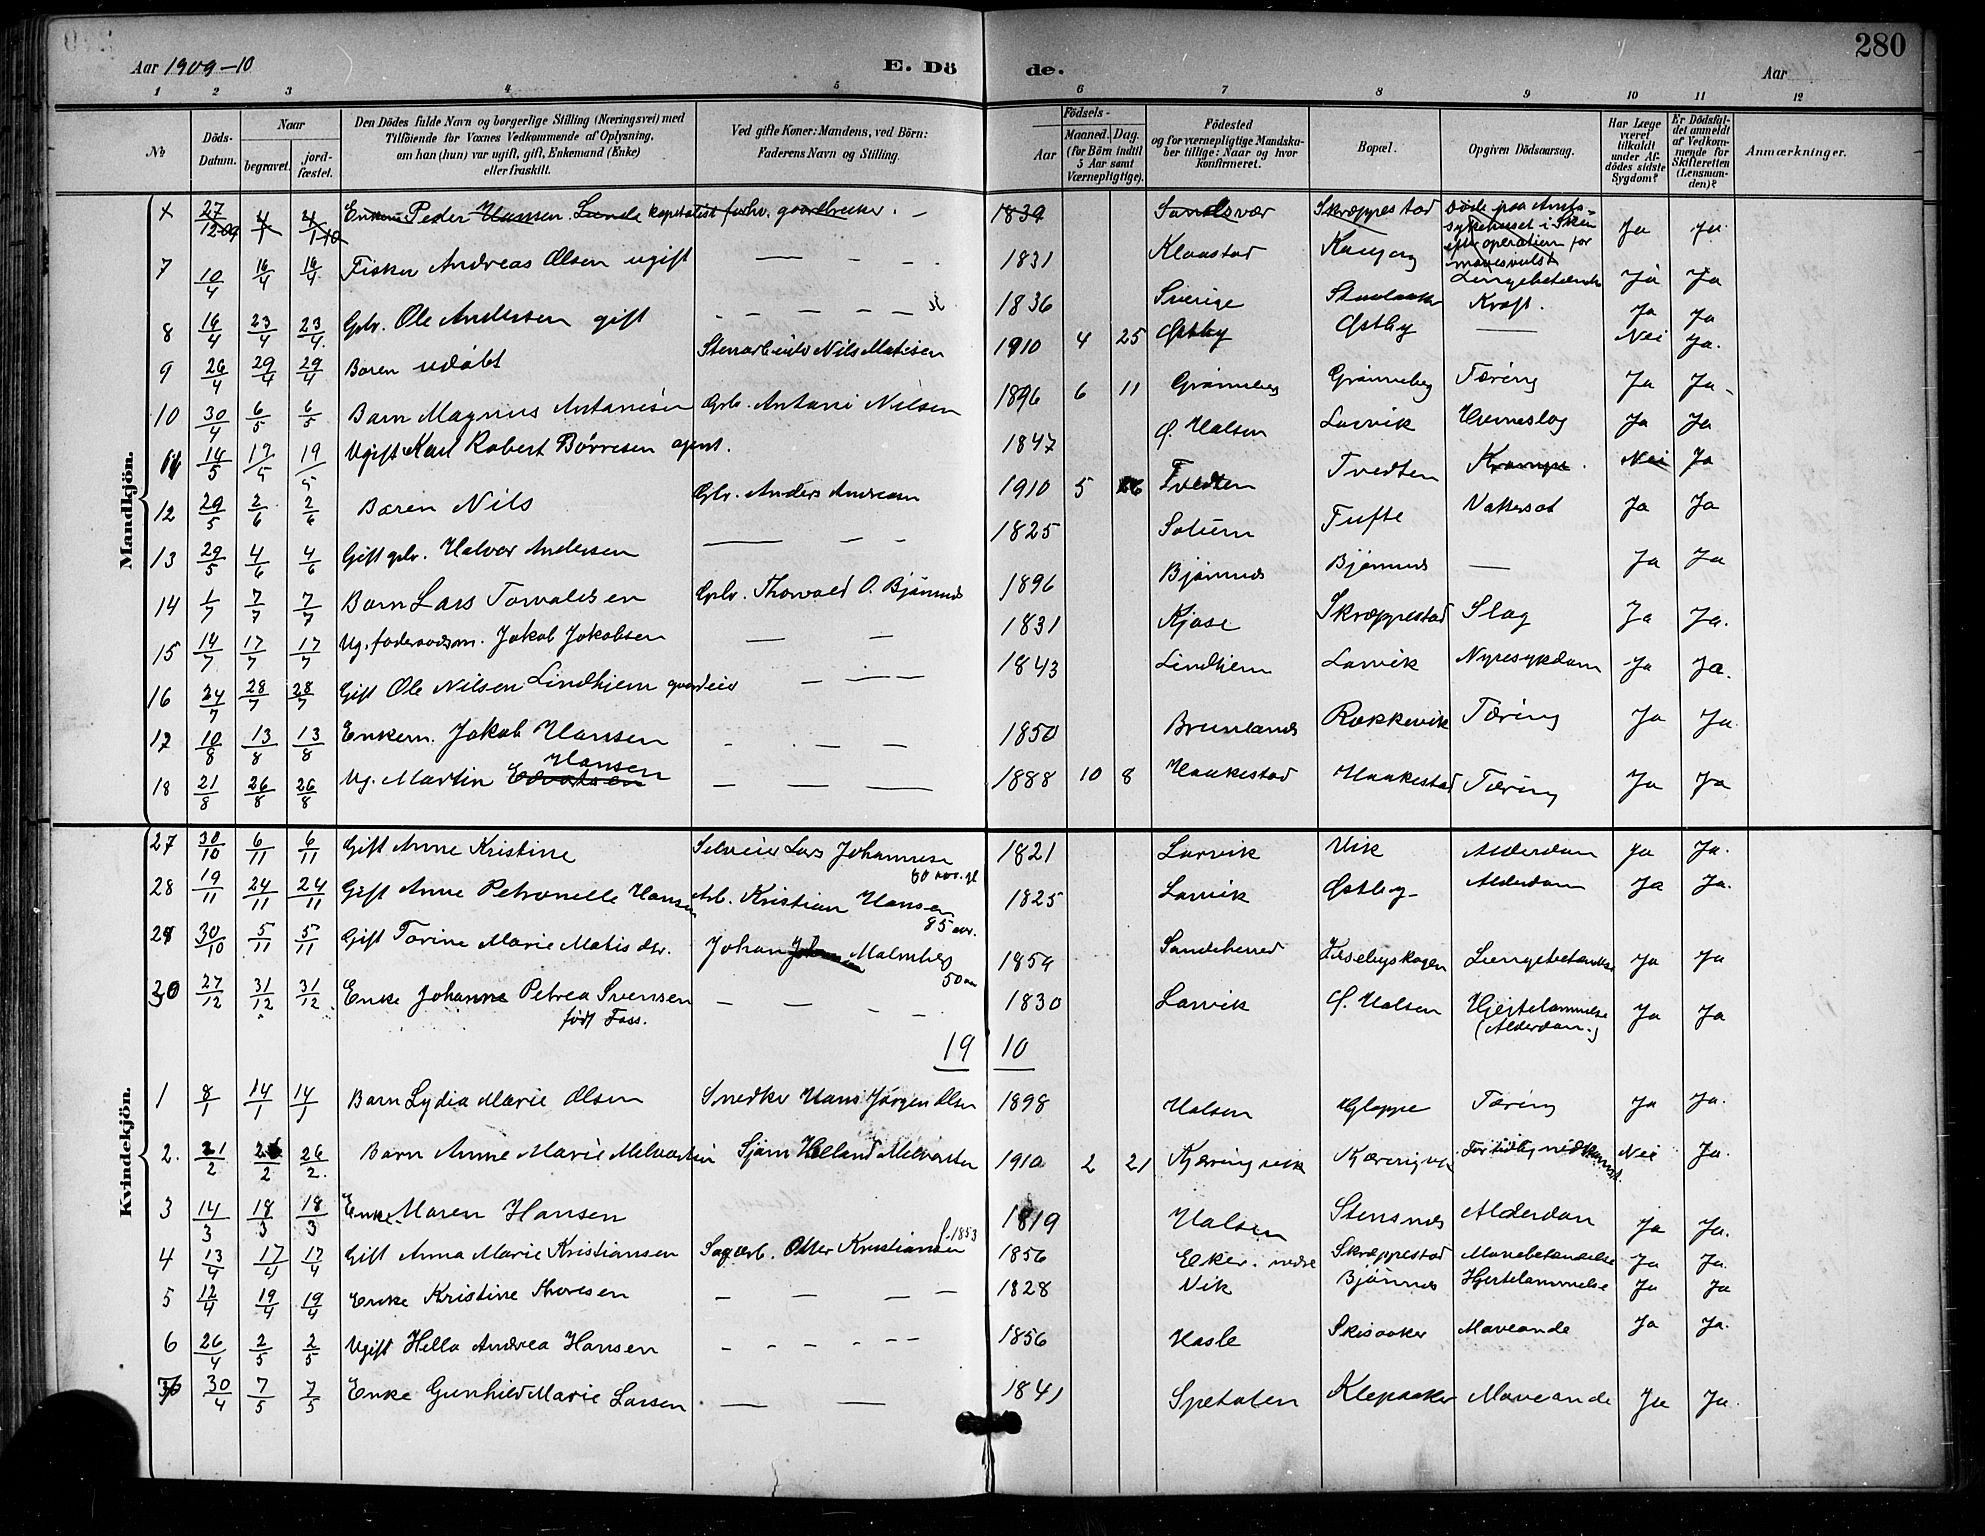 Aar 1909-10 E. Dö de. Aar 280
1 2 3 4 5 6 7 8 9 10 11 12
No
Döds-Datum.
Naar
begravet.
jord-fæstet.
Den Dödes fulde Navn og borgerlige Stilling (Næringsvei) med
Tilföiende for Voxnes Vedkommende af Oplysning,
om han (hun) var ugift, gift, Enkemand (Enke)
eller fraskilt.
Ved gifte Koner: Mandens, ved Börn:
Faderens Navn og Stilling.
Födsels-
Aar
Maaned. Dag.
(for Börn indtil
5 Aar samt
Værnepligtige).
Födested
og for værnepligtige Mandska-
ber tillige: Naar og hvor
konfirmeret.
Bopæl.
Opgiven Dödsaarsag.
Har Læge
været
tilkaldt
under Af-
dödes sidste
Sygdom?
Er Dödsfal-
det anmeldt
af Vedkom-
mende for
Skifteretten
(Lensman-
den)?
Anmærkninger.
Mandkjön.
x 27/12 09 4/1 4/1 10 Enkem Peder Hansen Lunde kapitalist forhv. gaardbruker. — 1839 Sandsvær Skræppestad Döde paa Amts-sykehuset i Skien efter operation for mavesvulst Ja Ja
7 10/4 16/4 16/4 Fisker Andreas Olsen ugift — - - 1831 Klaastad Kaupang Lungebetændelse Ja Ja
8 16/4 23/4 23/4 Gbr. Ole Andersen gift - - - - - 1836 Sverige Kræft. Ja Ja
9 26/4 29/4 29/4 Barn udøbt Stenarbeider Nils Matisen 1910 4 25 Østby Østby — Nei Ja.
10 30/4 6/5 6/5 Barn Magnus Antonisen Gbr. Antoni Nilsen 1896 6 11 Grønneberg Grønneberg Tæring Ja Ja
11 14/5 19/5 19/5 Ugift Karl Robert Börresen agent. 1847 Ø. Halsen Larvik Hjerneslag Ja Ja
12 29/5 2/6 2/6 Barn Nils Gbr. Anders Andersen 1910 5 26 Tvedten Tvedten Krampe. Nei Ja
13 29/5 4/6 4/6 Gift gbr. Halvor Andersen — - - 1825 Solum Tufte Vattersot Ja Ja
14 1/7 7/7 7/7 Barn Lars Torvaldsen Gbr. Thorvald O. Bjönnes 1896 Bjönnes Bjönnes — Ja Ja
15 14/7 17/7 17/7 Ug. foderaadsm. Jakob Jakobsen — — 1831 Kjose Skræppestad Slag Ja Ja.
16 24/7 28/7 28/7 Gift Ole Nilsen Lindhjem gaardeier - — - 1843 Lindhjem Larvik Nyresykdom Ja Ja.
17 10/8 13/8 13/8 Enkem. Jakob Hansen - - — 1850 Brunlanes Rækkevik Tæring Ja Ja
18 21/8 26/8 26/8 Ug. Martin Evertsen Hansen — — — 1888 10 8 Haakestad Haakestad Tæring Ja Ja
Kvindekjön.
27 30/10 6/11 6/11 Gift Anne Kristine Selveier Lars Johannesen 1821 Larvik Vik Alderdom Ja Ja.
28 19/11 24/11 24/11 Gift Anne Petronelle Hansen Arb. Kristian Hansen 85 aar. 1825 Larvik Østby Alderdom Ja Ja.
29 30/10 5/11 5/11 Gift Torine Marie Matisdtr. Johan Malmberg 50 aar 1859 Sandeherred Lungebetændelse Ja Ja
30 27/12 31/12 31/12 Enke Johanne Petrea Svensen født Foss. — — - - 1830 Larvik Ø. Halsen Hjertelammelse (Alderdom.) Ja Ja
19 10
1 8/1 14/1 14/1 Barn Lydia Marie Olsen Snedker Hans Jörgen Olsen 1898 Halsen Gloppe Tæring Ja Ja.
2. 21/2 26/2 26/2. Barn Anne Marie Melvartsen Sjöm. Helland Melvartsen 1910 2 21 Kjærringvik Kærringvik For tidlig nedkomst. Nei Ja.
3 14/3 18/3 18/3 Enke Maren Hansen 1819 Halsen Stensnes Alderdom Ja Ja.
4 13/4 17/4 17/4 Gift Anna Marie Kristiansen Sagarb. Otter Kristiansen f. 1853 1856 Eker. nedre Skræppestad Mavebetændelse Ja Ja
5 12/4 19/4 19/4 Enke Kristine Thoresen — — — — 1828 Vik Bjönnes Hjertelammelse Ja Ja
6 26/4 2/5 2/5 Ugift Hella Andrea Hansen - - - - - - 1856 Hasle Skisaaker Maveonde Ja Ja.
7 30/4 7/5 7/5 Enke Gunhild Marie Larsen - — — 1841 Spetalen Klepaaker Maveonde Ja Ja.